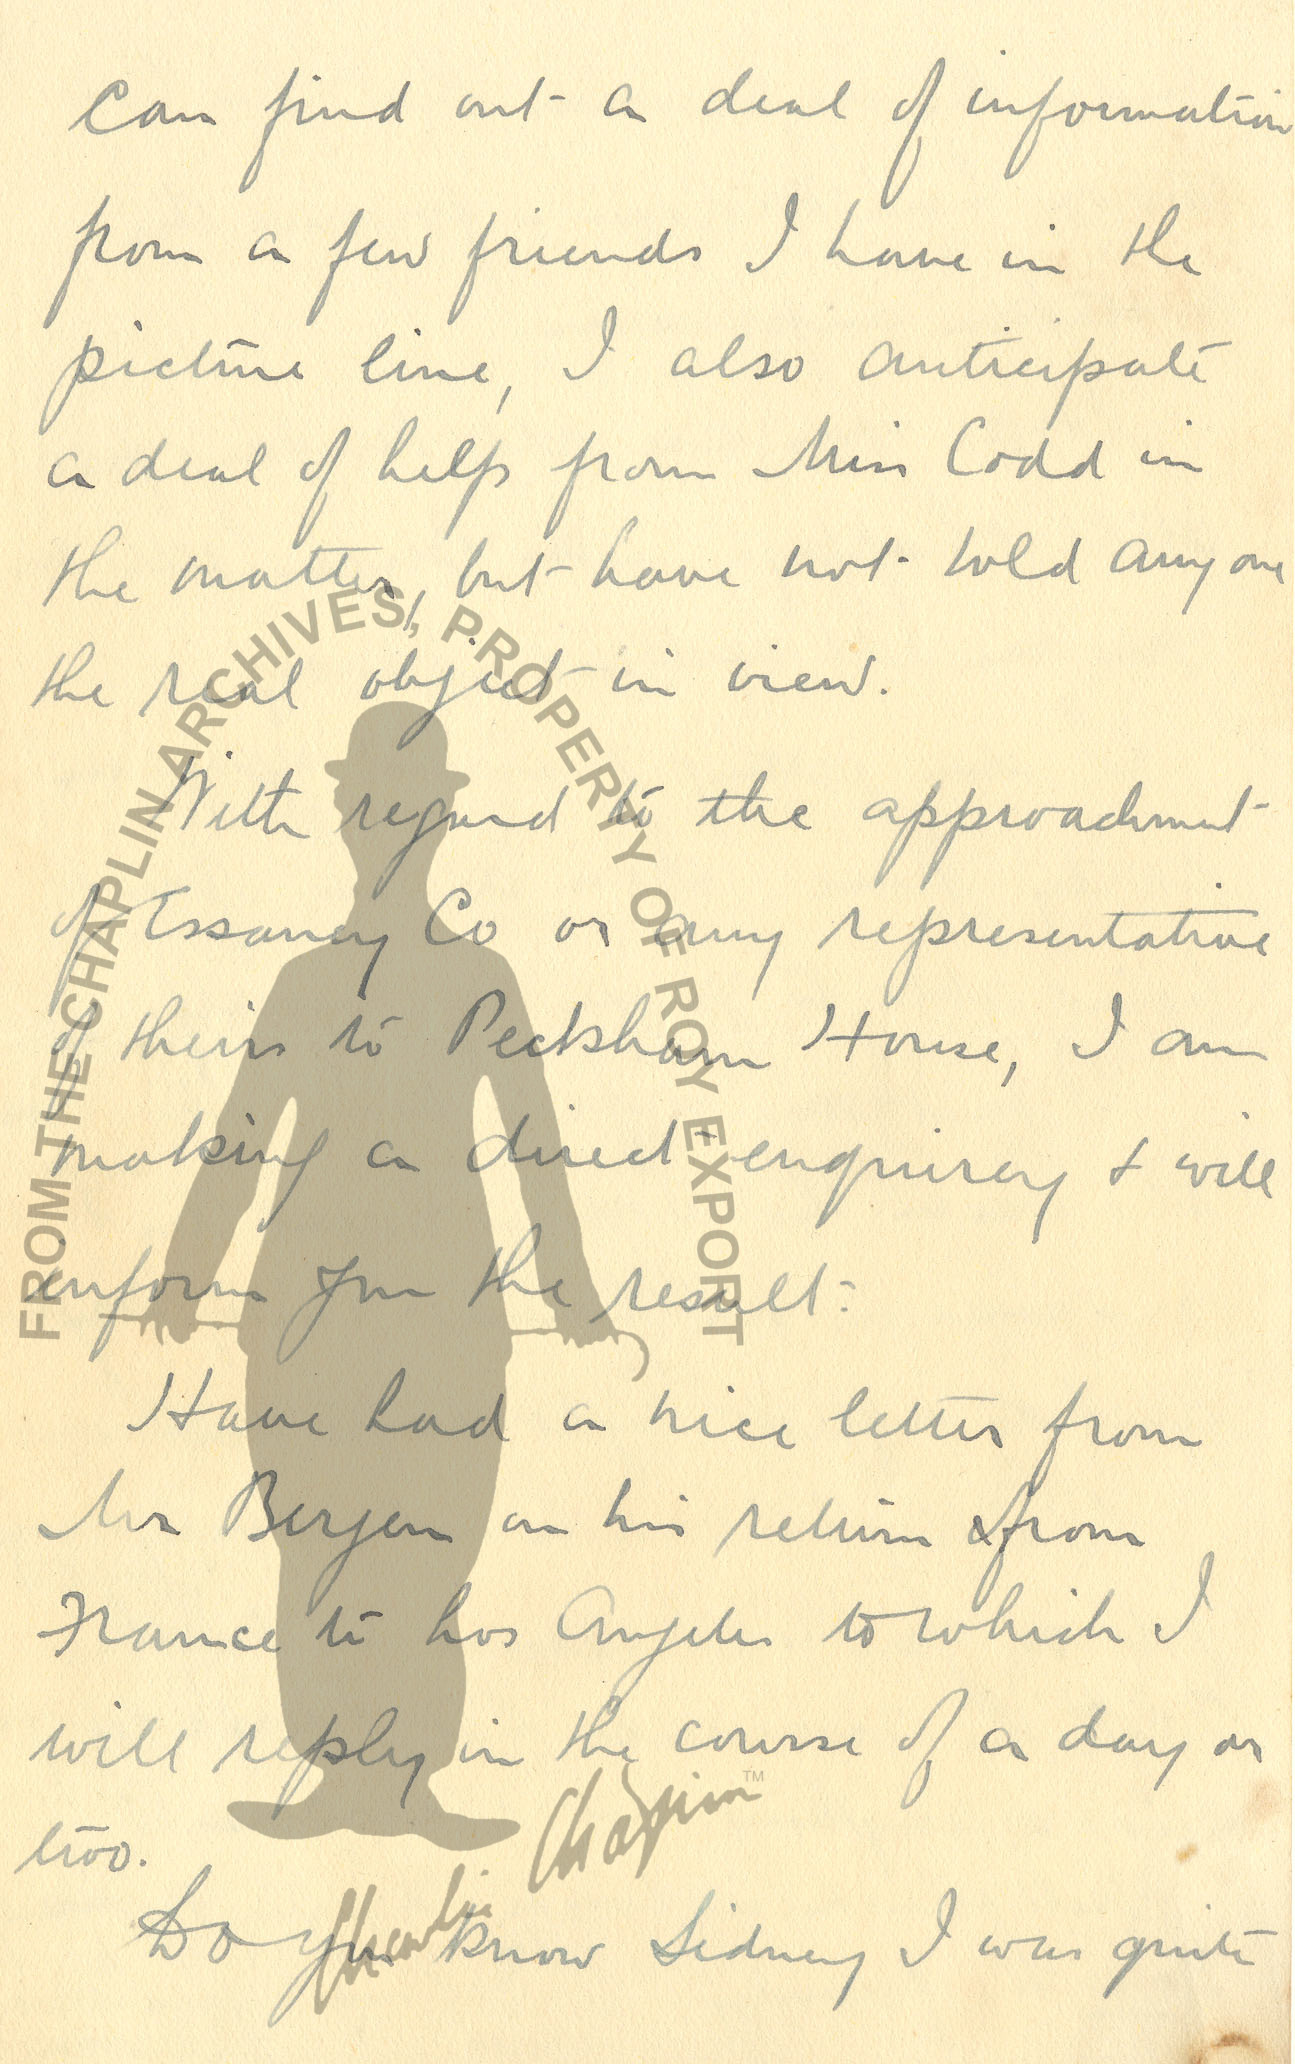 can find out a deal of information
from a few friends I have in the
picture line, I also anticipate
a deal of help from Miss Codd in
the matter, but have not told anyone
the real object in view.
With regard to the approachment
of Essanay Co or any representative
of theirs to Peckham House, I am
making a direct enquirey & will
inform you the result:
Have had a nice letter from
Mr Bergen on his return from
France to Los Angeles to which I
will reply in the course of a day or
two.
Do you know Sidney I was quite
FROM THE CHAPLIN ARCHIVES, PROPERTY OF ROY EXPORT
Charlie Chaplin™